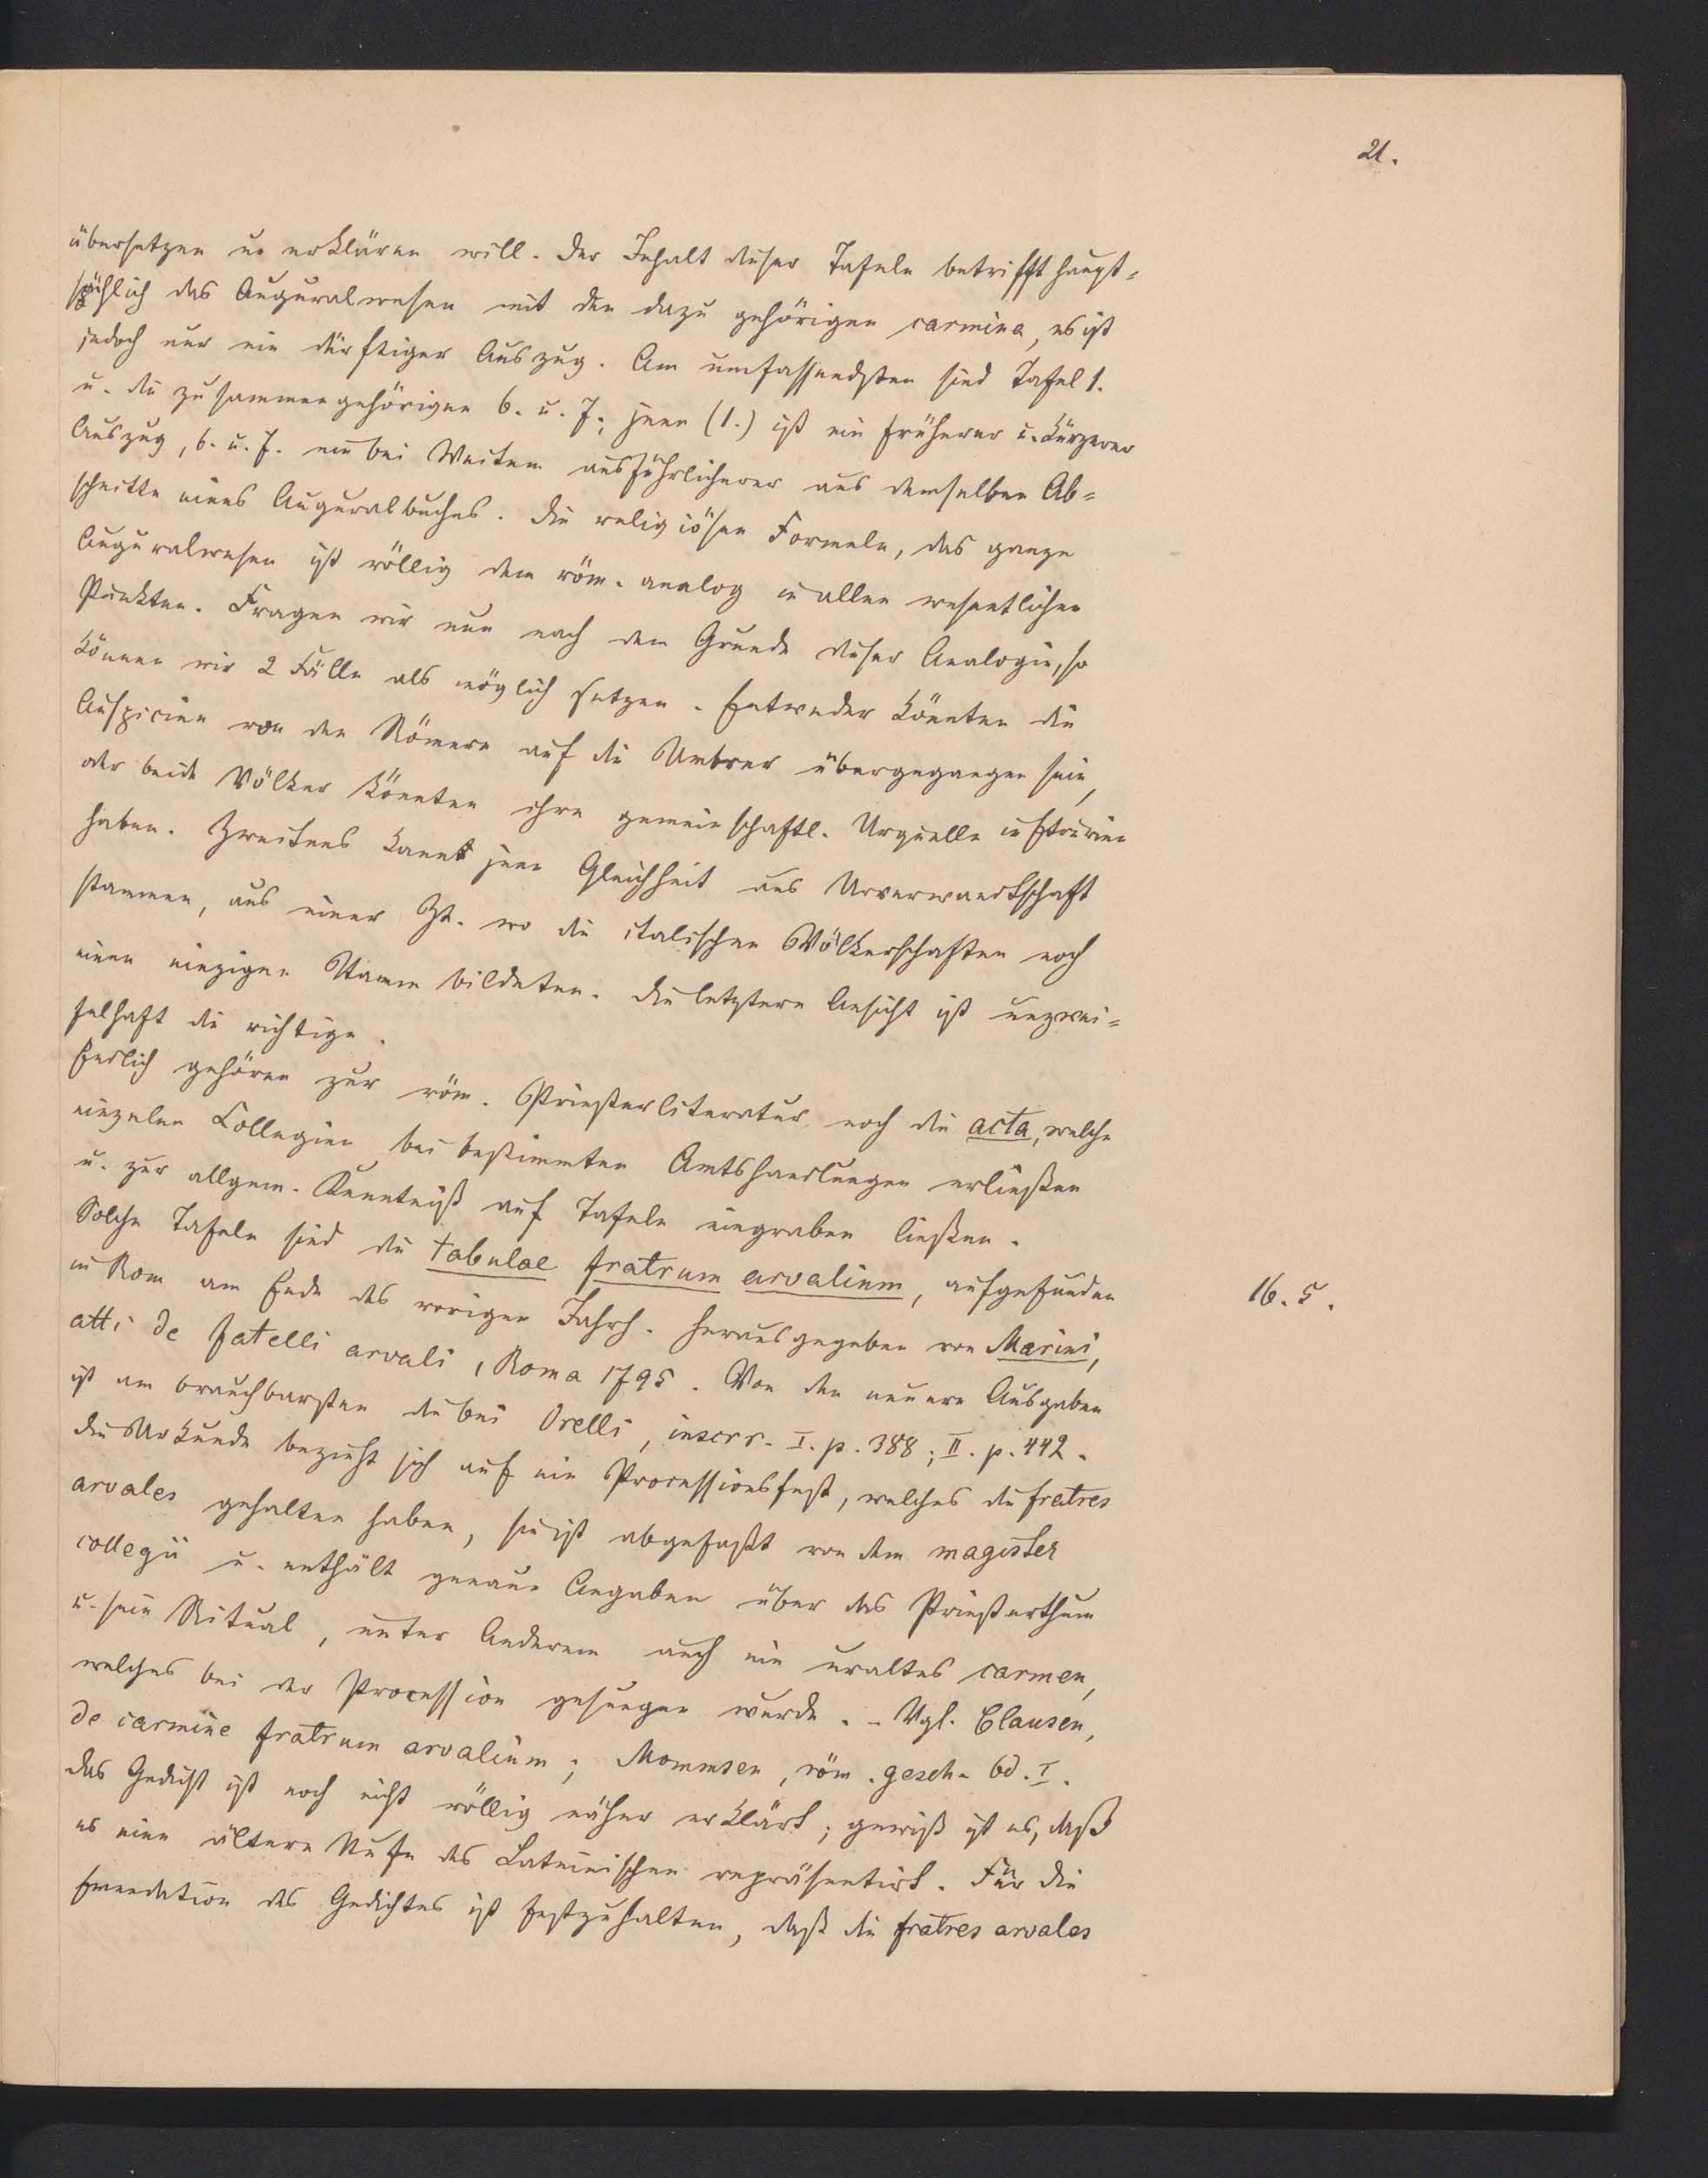 21.
übersetzen u. erklären will. Der Inhalt dieser Tafeln betrifft haupt=
sächlich das Auguralwesen mit den dazu gehörigen carmina, es ist
jedoch nur ein dürftiger Auszug. Am umfassendsten sind Tafel 1.
u. die zusammengehörigen 6. u. 7.; jene (1.) ist ein früherer u. kürzerer
Auszug, 6. u. 7. ein bei Weitem ausführlicherer aus demselben Ab=
schnitte eines Auguralbuches. Die religiösen Formeln, das ganze
Auguralwesen ist völlig dem röm. analog in allen wesentlichen
Punkten. Fragen wir nun nach dem Grunde dieser Analogie, so
können wir 2 Fälle als möglich setzen. Entweder könnten die
Auspicien von den Römern auf die Umbrer übergegangen sein,
oder beide Völker könnten ihre gemeinschaftl. Urquelle in Etrurien
haben. Zweitens kann jene Gleichheit aus Urverwandtschaft
stammen, aus einer Zt. wo die italischen Völkerschaften noch
einen einzigen Stamm bildeten. Die letztere Ansicht ist unzwei=
felhaft die richtige.
Endlich gehören zur röm. Priesterliteratur noch die acta, welche
einzelne Collegien bei bestimmten Amtshandlungen erließen
u. zur allgem. Kenntniß auf Tafeln eingraben ließen.
Solche Tafeln sind die tabulae fratrum arvalium, aufgefunden
in Rom am Ende des vorigen Jahrh. herausgegeben von Marini,
16. 5.
atti de fatelli arvali, Roma 1795. Von den neuern Ausgaben
ist am brauchbarsten die bei Orelli, inscrr. I. p. 388; II. p. 442.
Die Urkunde bezieht sich auf ein Processionsfest, welches die fratres
arvales gehalten haben, sie ist abgefaßt von dem magister
collegii u. enthält genaue Angaben über das Priesterthum
u. sein Ritual, unter Anderem auch ein uraltes carmen,
welches bei der Procession gesungen wurde. - Vgl. Clausen,
de carmine fratrum arvalium; Mommsen, röm. gesch. bd. I.
Das Gedicht ist noch nicht völlig näher erklärt; gewiß ist es, daß
es eine ältere Stufe des Lateinischen repräsentirt. Für die
Emendation des Gedichtes ist festzuhalten, daß die fratres arvales